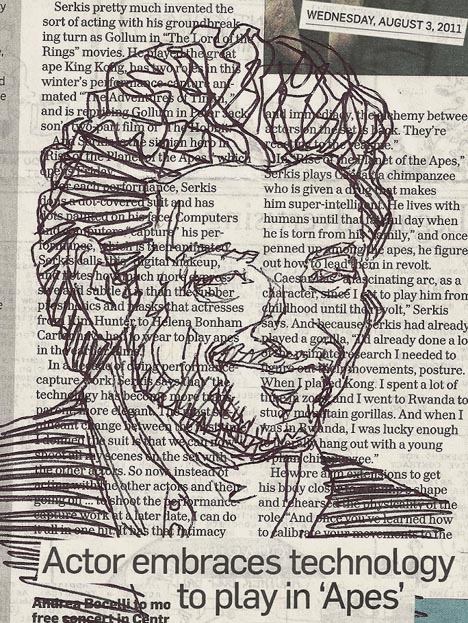 WEDNESDAY, AUGUST 3, 2011
Serkis pretty much invented the
sort of acting with his groundbreak-
ing turn as Gollum in "The Lord of the
Rings" movies. He played the great
ape King Kong, has two roles in this
winter's performance-capture ani-
mated "The Adventures of Tintin,"
and is reprising Gollum in Peter Jack-
son's two-part film of "The Hobbit."
And Serkis is the simian hero in
"Rise of the Planet of the Apes," which
opens Friday.
For each performance, Serkis
dons a dot-covered suit and has
dots painted on his face. Computers
capture his per-
formance, which is then animated.
Serkis calls this "digital makeup,"
and notes how much more
and subtle it is than the rubber
prosthetics and masks that actresses
from Kim Hunter to Helena Bonham
Carter have had to wear to play apes
in the earlier films.
In a decade of doing performance-
capture work, Serkis says that the
technology has become more
more elegant. The most
change between the
I donned the suit is that we can now
shoot all my scenes on the set with
the other actors. So now, instead of
acting with the other actors and then
going off ... to shoot the performance-
capture work at a later date, I can do
it all in one hit. It has that intimacy
and immediacy, the alchemy between
actors on the set is back. They're
reacting to the
In "Rise of the Planet of the Apes,"
Serkis plays Caesar, a chimpanzee
who is given a drug that makes
him super-intelligent. He lives with
humans until that fateful day when
he is torn from his "family," and once
penned up among the apes, he figures
out how to lead them in revolt.
Caesar has a fascinating arc, as a
character, since I get to play him from
childhood until the revolt," Serkis
says. And because Serkis had already
played a gorilla, "I'd already done a lot
research I needed to
figure out movements, posture.
When I played Kong. I spent a lot of
and I went to Rwanda to
study mountain gorillas. And when I
was in Rwanda, I was lucky enough
hang out with a young
chimpanzee."
He wore arm extensions to get
his body closer to chimp's shape
and rehearsed the physicality of the
role. "And once you've learned how
to calibrate your movements to the
Actor embraces technology
to play in 'Apes'
Andrea Bocelli to mo
free concert in Centr